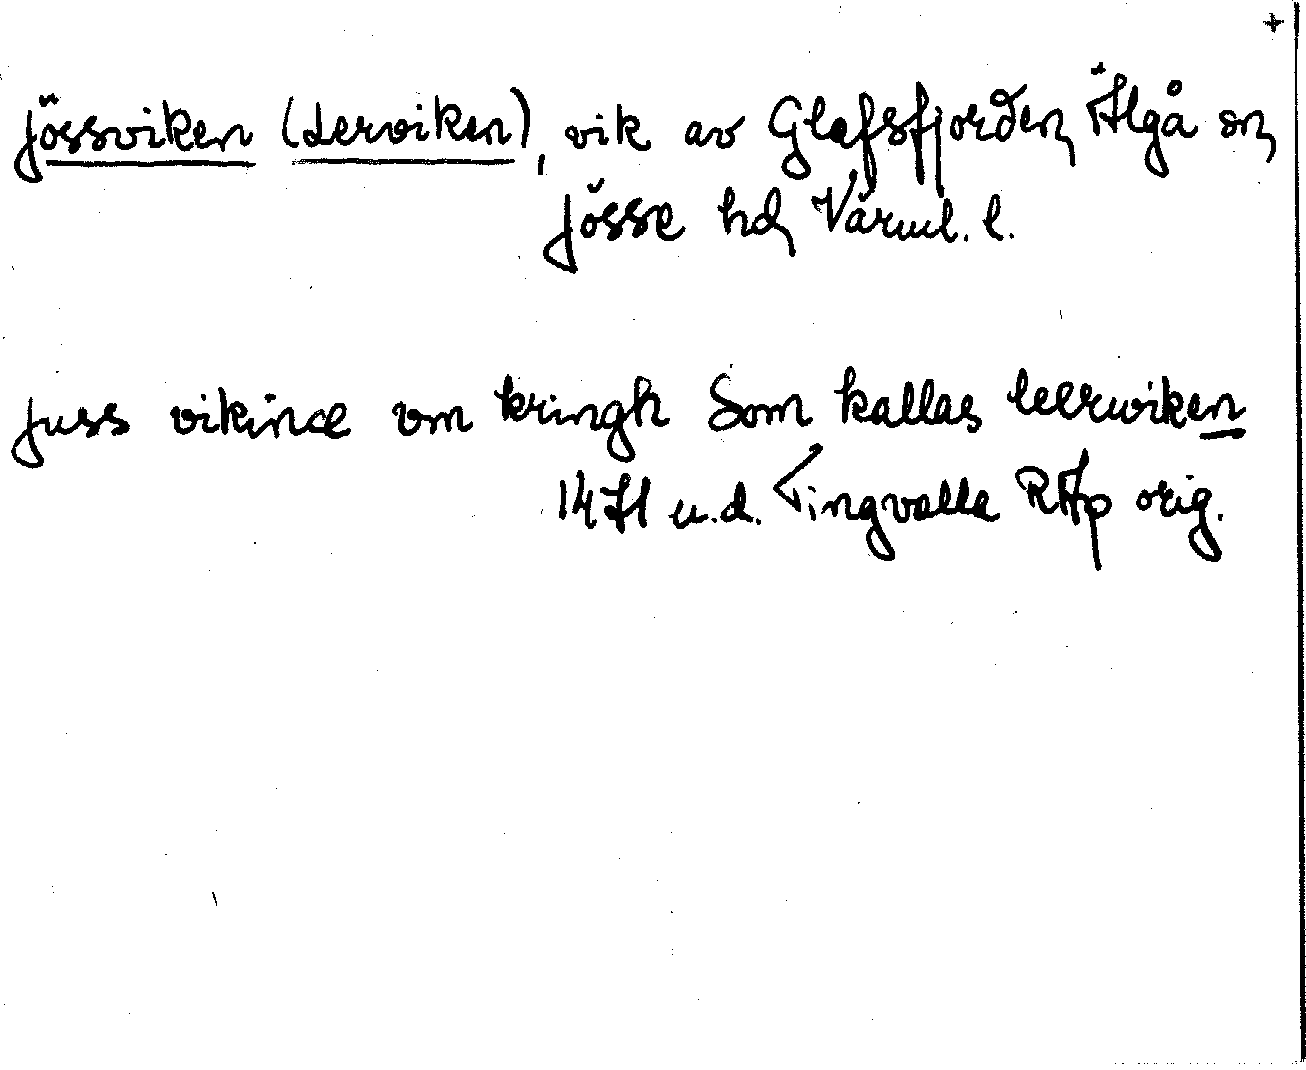 +
Jössviken (Lerviken), vik av Glafsfjorden, Älgå sn,
Jösse hd, Värml. l.
juss vikinæ vm kringh Som kallas leerwiken
1471 u.d. Tingvalla RAp orig.